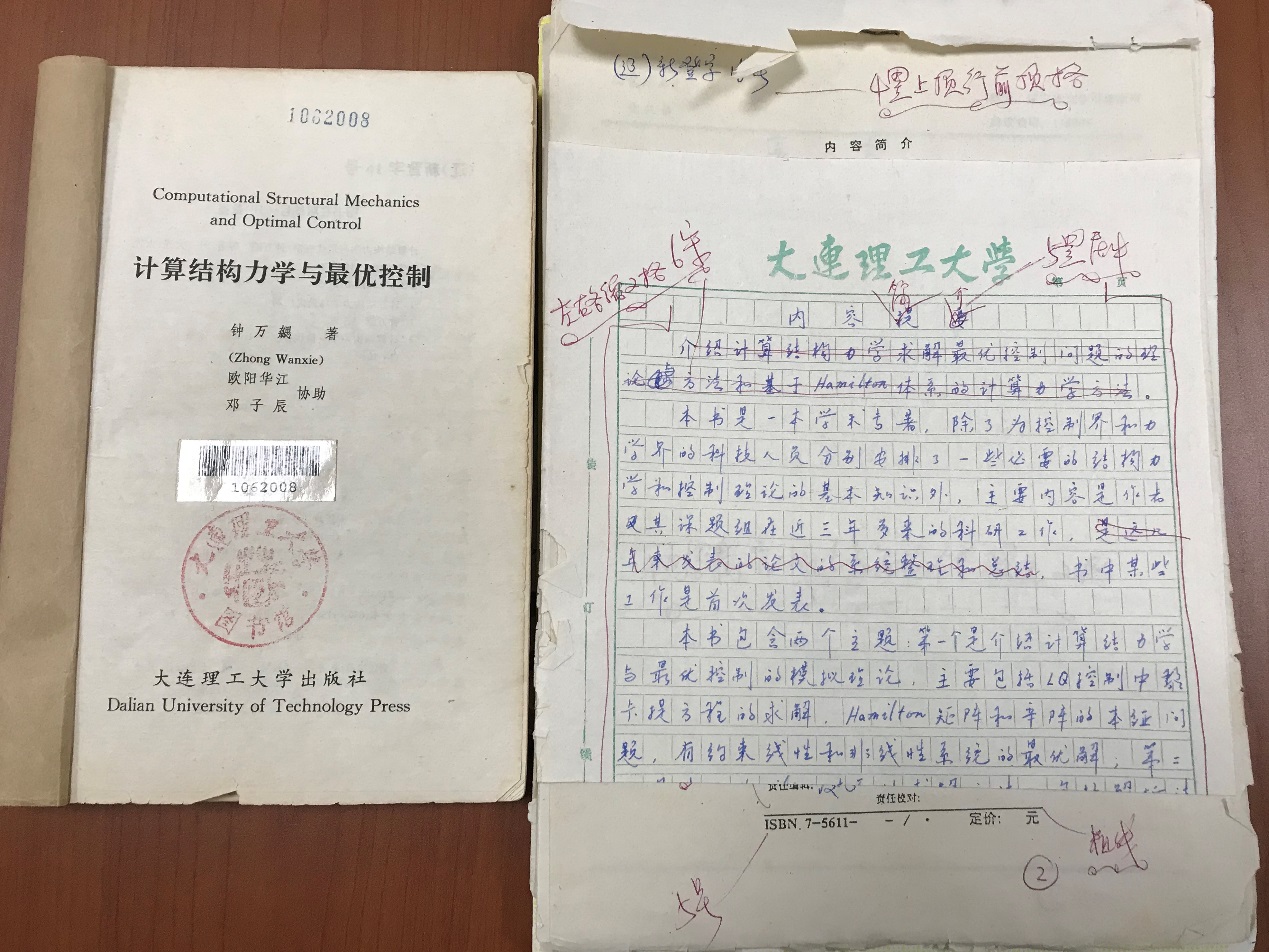 1062008
Computational Structural Mechanics
and Optimal Control
计算结构力学与最优控制
钟万勰 著
(Zhong Wanxie)
欧阳华江
协助
邓子辰
1062008
大连理工大学
图书馆
大连理工大学出版社
Dalian University of Technology Press
(辽)新登字16号
4黑上顶行前顶格
内容简介
大連理工大学
第 页
内容提要
简介
介绍计算结构力学求解最优控制问题的理
论 方法和基于Hamilton体系的计算力学方法。
本书是一本学术专著，除了为控制界和力
学界的科技人员分别安排了一些必要的结构力
学和控制理论的基本知识外，主要内容是作者
及其课题组在近三年多来的科研工作，是这几
年来发表的论文的系统整理和总结，书中某些
工作是首次发表。
本书包含两个主题：第一个是介绍计算结力学
与最优控制的模拟理论，主要包括LQ控制中黎
卡提方程的求解，Hamilton矩阵和辛阵的本征问
题，有约束线性和非线性系统的最优解，第二
装
订
线
责任编辑:
责任校对:
ISBN 7-5611- - / · 定价: 元
粗线
2
5号